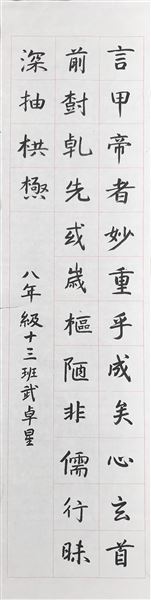 言甲帝者妙重乎成矣心玄首
前尌乹先或嵗樞陋非儒行昧
深抽栱檄
八年級十三班武卓星